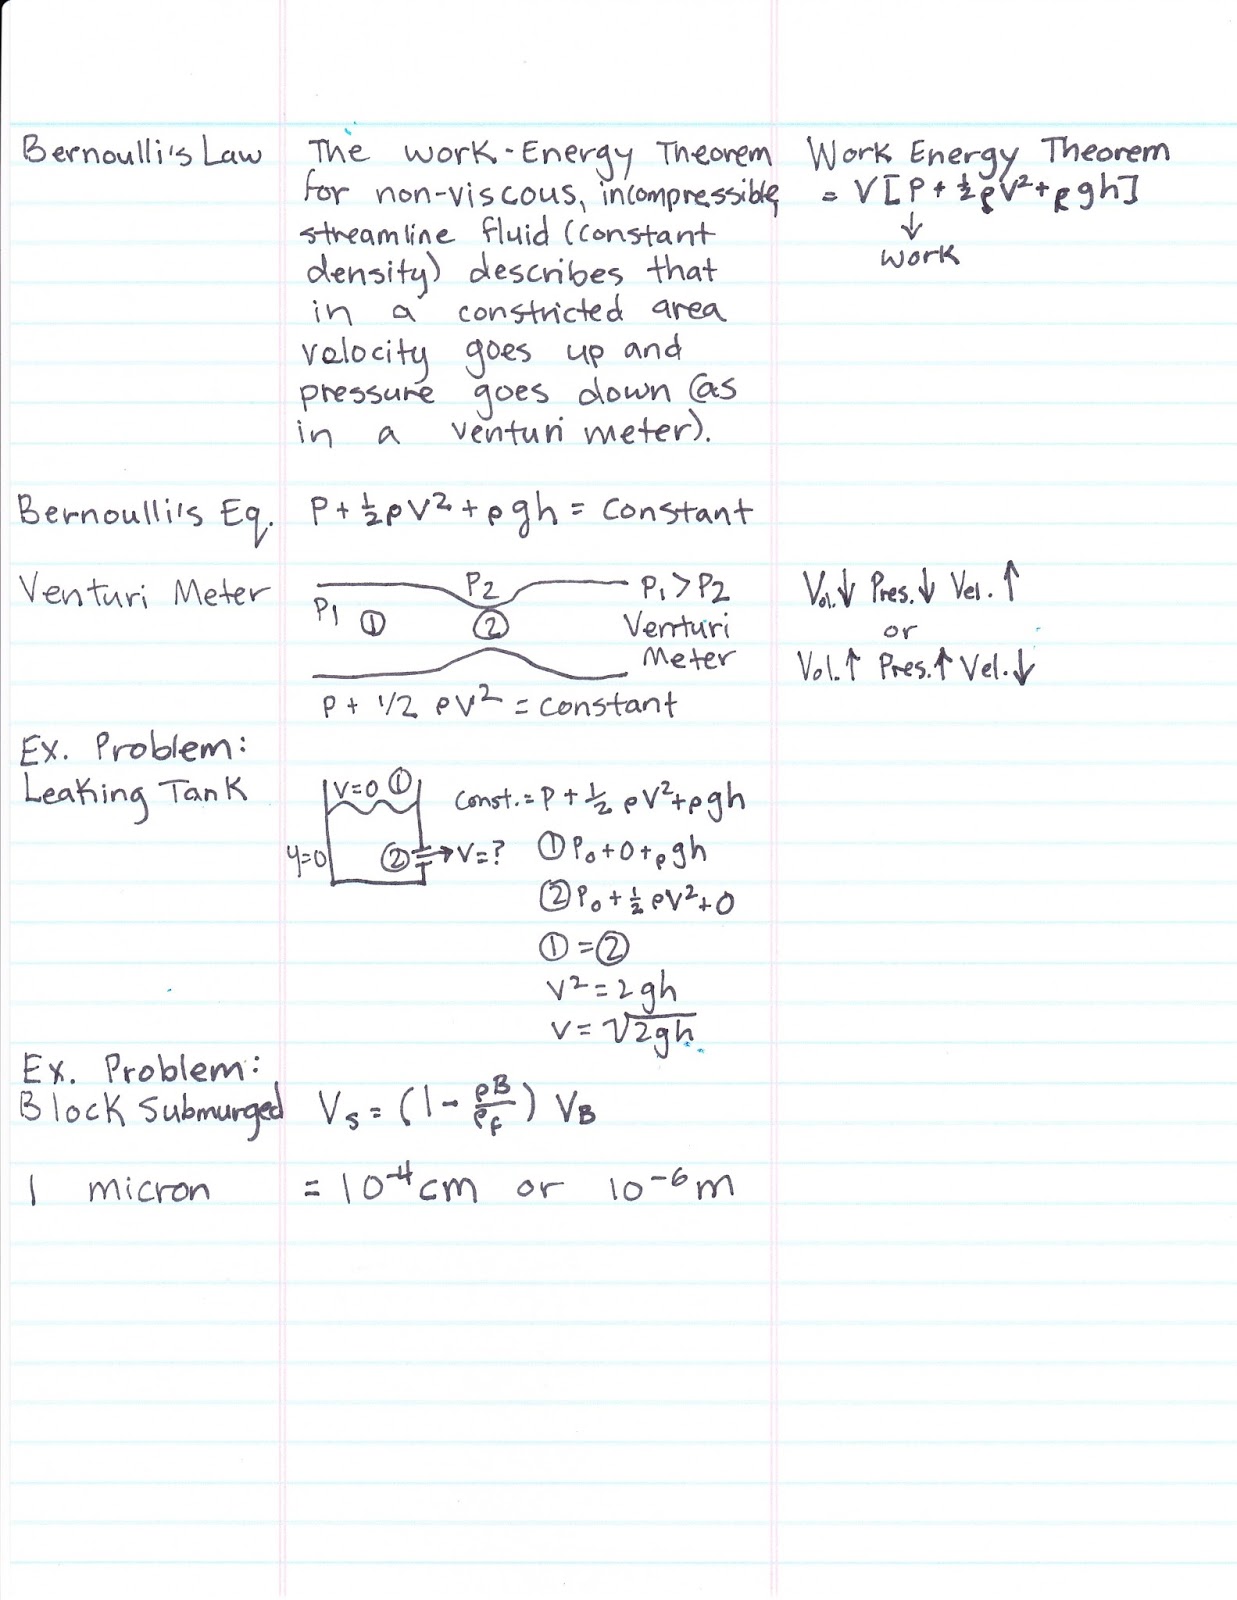 Bernoulli's Law
The Work-Energy Theorem
for non-viscous, incompressible,
streamline fluid (constant
density) describes that
in a constricted area
velocity goes up and
pressure goes down (as
in a venturi meter).
Work Energy Theorem
= V[P + ½ρV² + ρgh]
↓
Work
Bernoulli's Eq. P + ½ρV² + ρgh = Constant
Venturi Meter
P2
P1 ① ②
P1 > P2
Venturi
Meter
P + 1/2 ρV² = constant
Vol.↓ Pres.↓ Vel.↑
or
Vol.↑ Pres.↑ Vel.↓
Ex. Problem:
Leaking Tank
V=0 ①
y=0 ② → V=?
Const. = P + ½ρV² + ρgh
① P₀ + 0 + ρgh
② P₀ + ½ρV² + 0
① = ②
V² = 2gh
V = √2gh
Ex. Problem:
Block Submurged Vs = (1 - ρB/ρf) VB
1 micron = 10⁻⁴cm or 10⁻⁶m